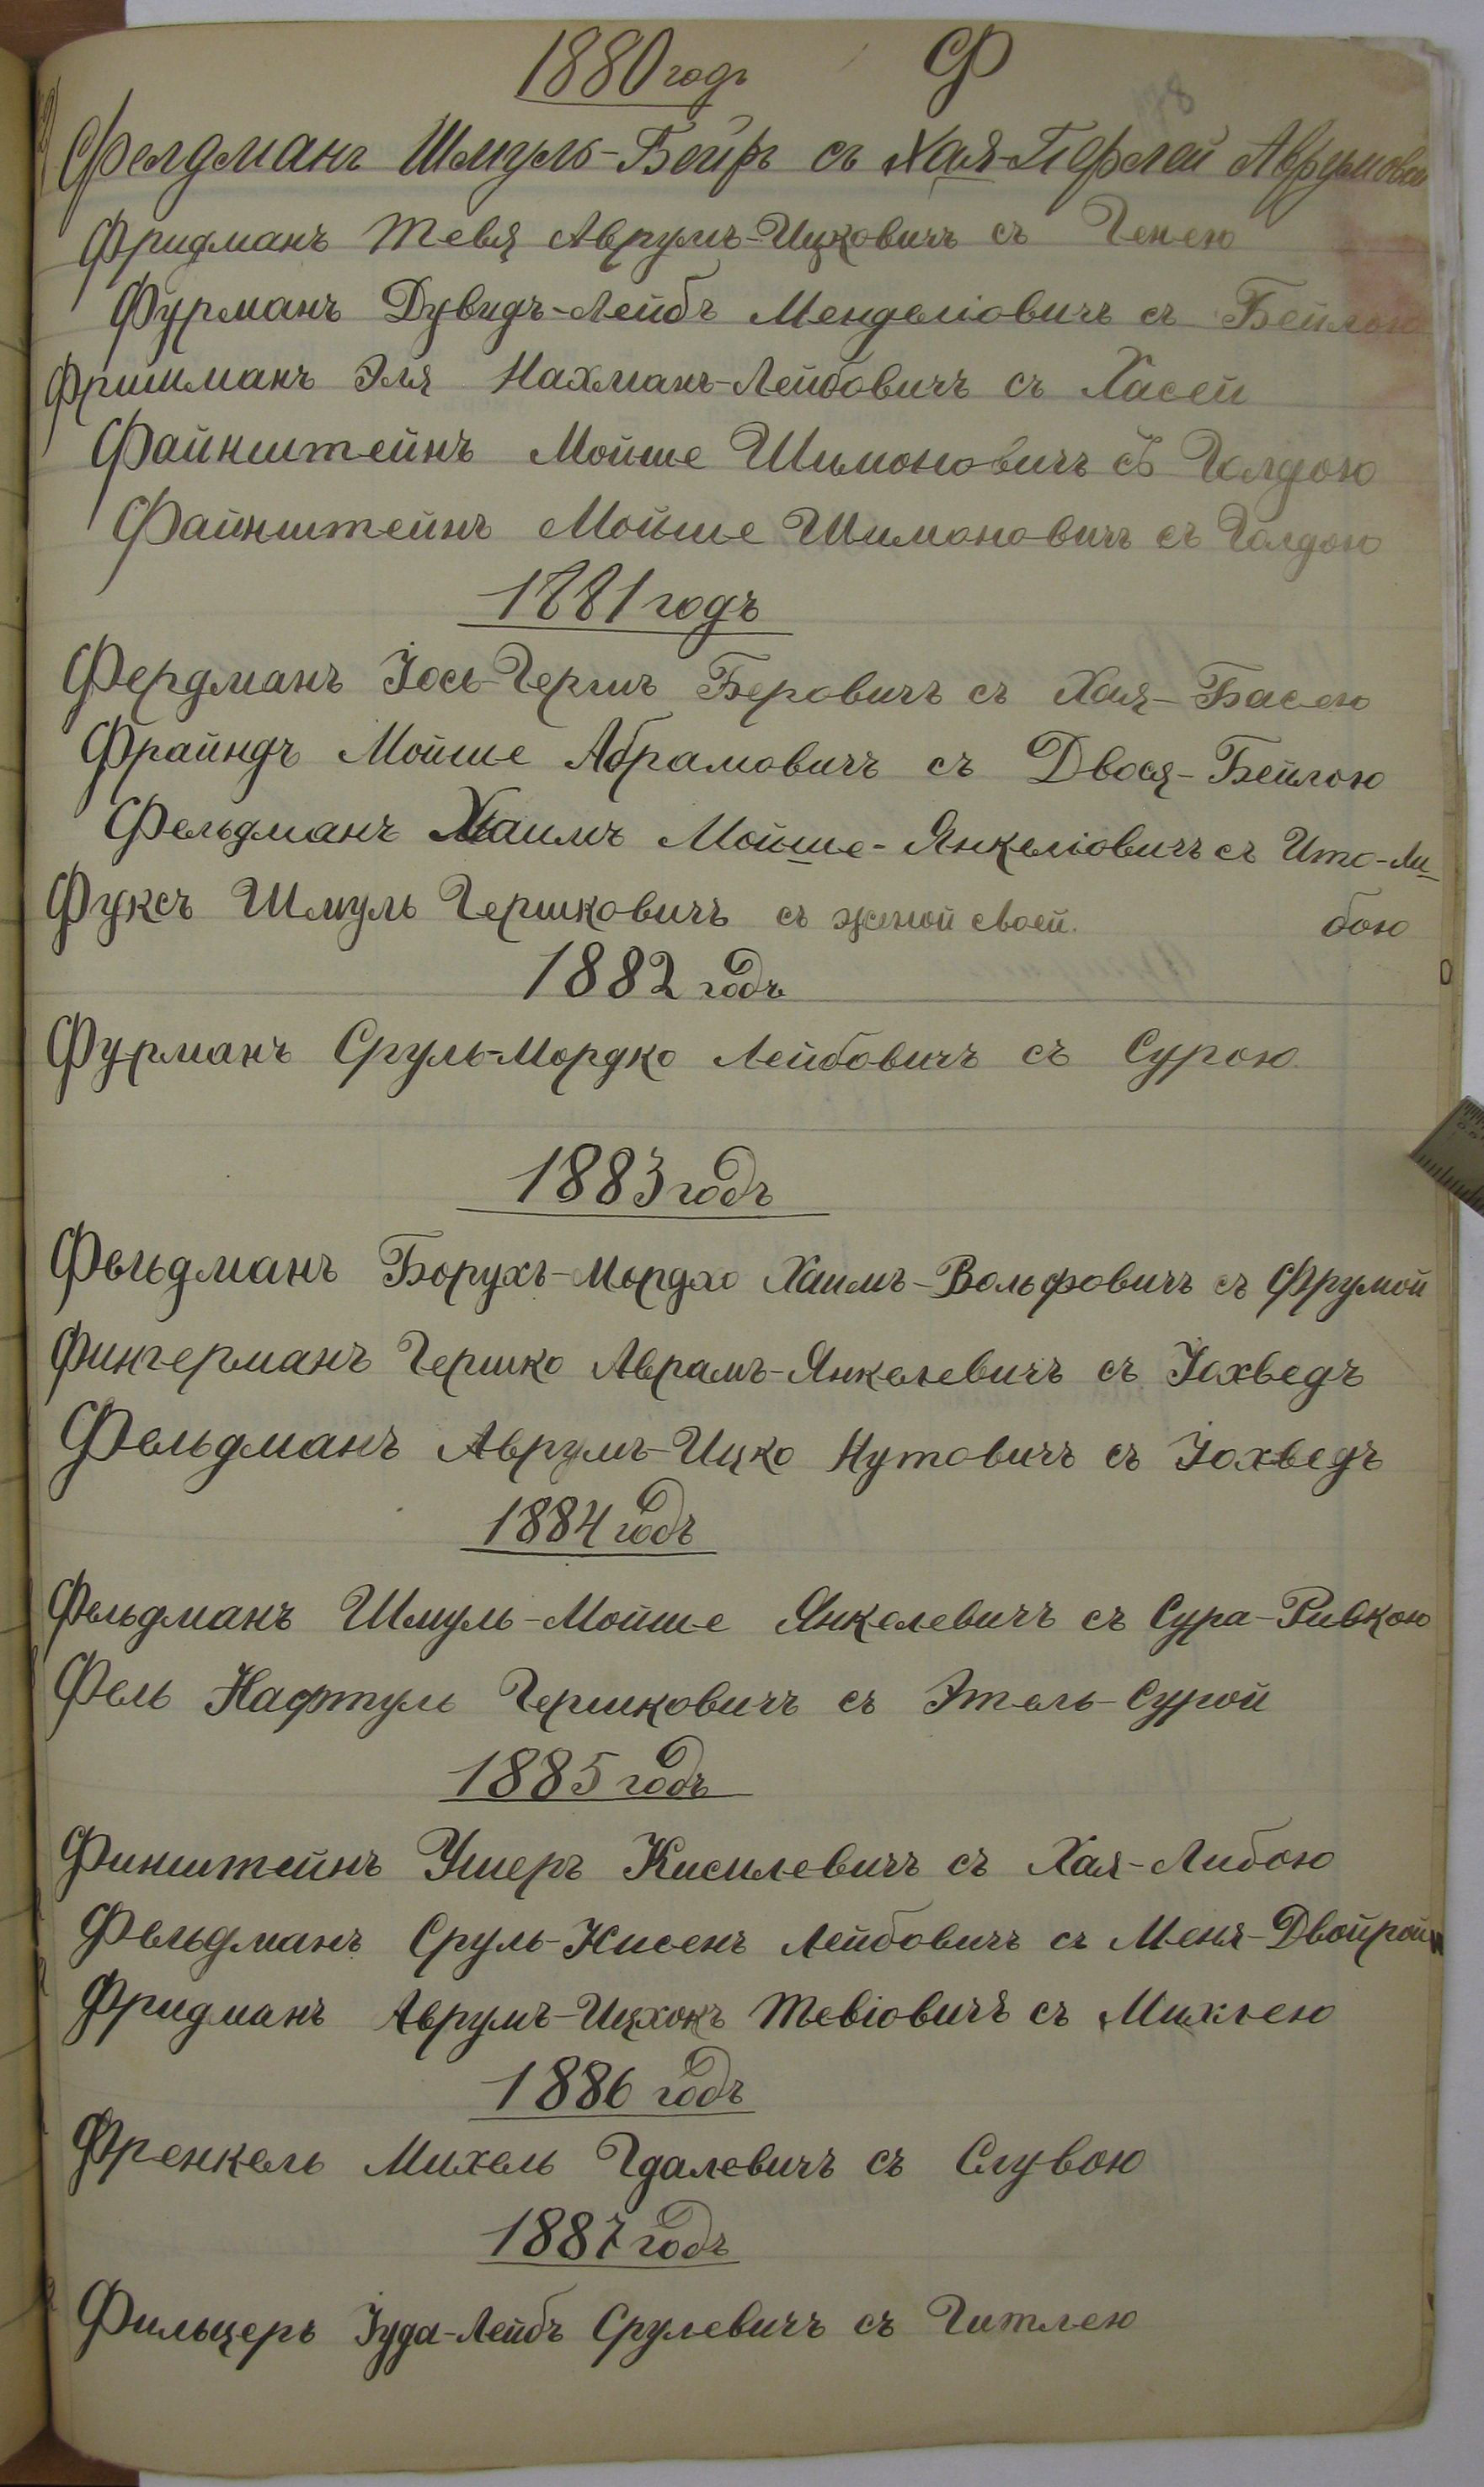 1880 годъ Ф
Фелдманъ Шмуль-Бейръ съ Хая-Перлей Аврумовой
Фридманъ Тевя Аврумъ-Ицковичъ съ Генею
Фурманъ Дувидъ-Лейбъ Менделіовичъ съ Бейлою
Фришманъ Эля Нахманъ-Лейбовичъ съ Хасей
Файнштейнъ Мойше Шимоновичъ съ Голдою
Файнштейнъ Мойше Шимоновичъ съ Голдою
1881 годъ
Фердманъ Іось-Гершъ Беровичъ съ Хая-Басею
Фрайндъ Мойше Абрамовичъ съ Двося-Бейлою
Фельдманъ Хаимъ Мойше-Янкеліовичъ съ Ита-Ли-
Фуксъ Шмуль Гершковичъ съ женой своей. бою
1882 годъ
Фурманъ Сруль-Мордко Лейбовичъ съ Сурою
1883 годъ
Фельдманъ Борухъ-Мордко Хаимъ-Вольфовичъ съ Фрумой
Фингерманъ Гершко Аврамъ-Янкелевичъ съ Іохведъ
Фельдманъ Аврумъ-Ицко Нутовичъ съ Іохведъ
1884 годъ
Фельдманъ Шмуль-Мойше Янкелевичъ съ Сура-Ривкою
Фель Нафтуль Гершковичъ съ Этель-Сурой
1885 годъ
Финштейнъ Ушеръ Кисилевичъ съ Хая-Либою
Фельдманъ Сруль-Нисенъ Лейбовичъ съ Меня-Двойрой
Фридманъ Аврумъ-Ицхокъ Тевіовичъ съ Михлею
1886 годъ
Френкель Михель Гдалевичъ съ Слувою
1887 годъ
Фильцеръ Іуда-Лейбъ Срулевичъ съ Гитлею